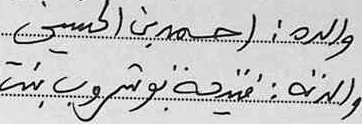 والده: احمد بن الحسين
والدته: فتيحة بوشروب بنت